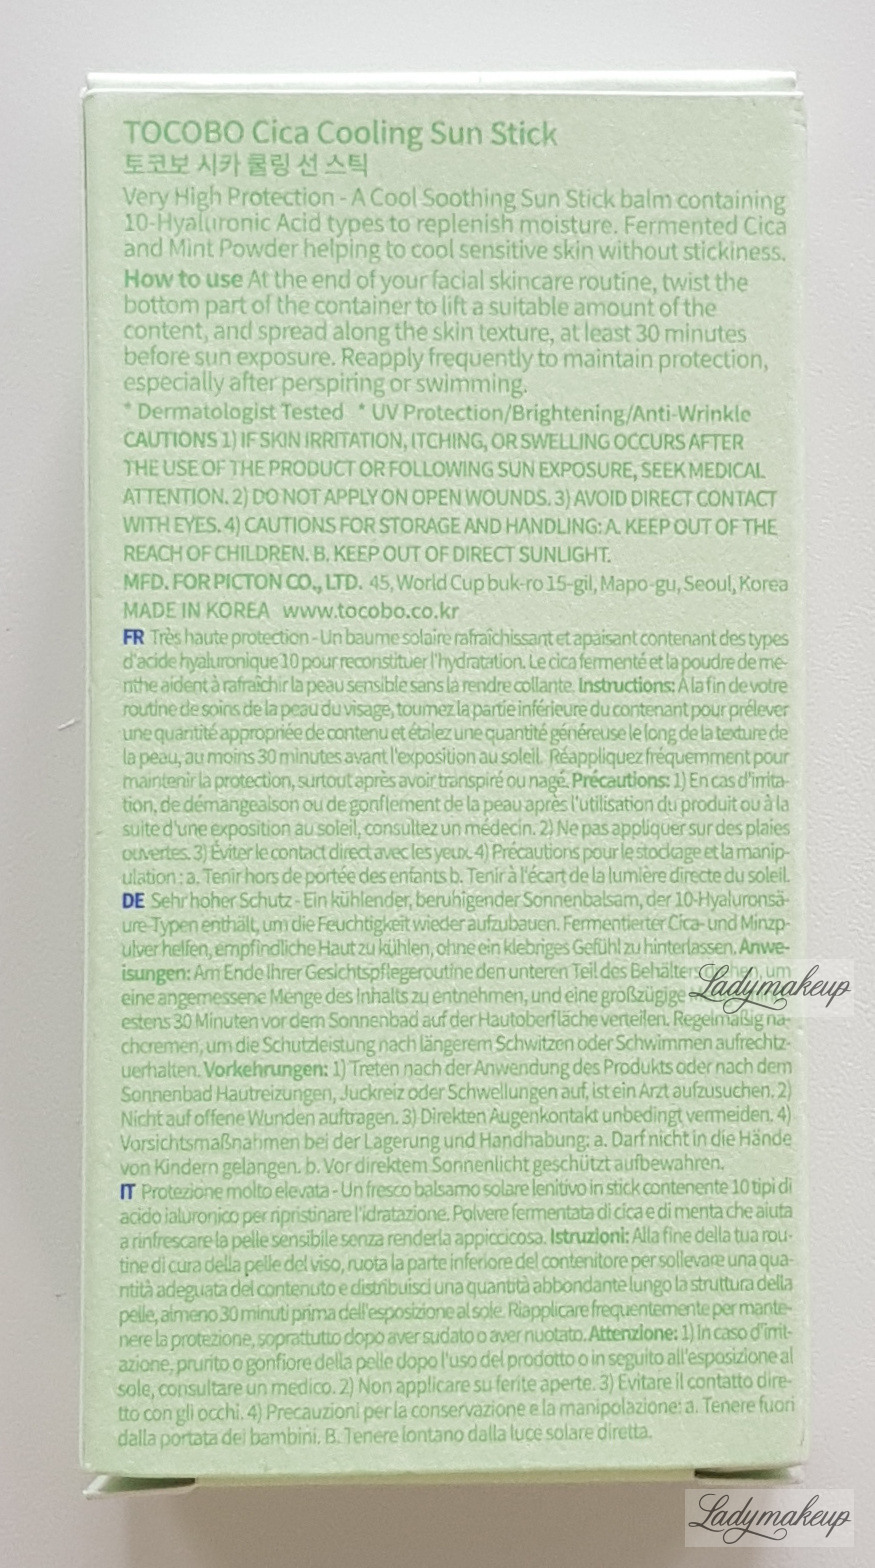 TOCOBO Cica Cooling Sun Stick
토코보 시카 쿨링 선 스틱
Very High Protection - A Cool Soothing Sun Stick balm containing
10-Hyaluronic Acid types to replenish moisture. Fermented Cica
and Mint Powder helping to cool sensitive skin without stickiness.
How to use At the end of your facial skincare routine, twist the
bottom part of the container to lift a suitable amount of the
content, and spread along the skin texture, at least 30 minutes
before sun exposure. Reapply frequently to maintain protection,
especially after perspiring or swimming.
* Dermatologist Tested * UV Protection/Brightening/Anti-Wrinkle
CAUTIONS 1) IF SKIN IRRITATION, ITCHING, OR SWELLING OCCURS AFTER
THE USE OF THE PRODUCT OR FOLLOWING SUN EXPOSURE, SEEK MEDICAL
ATTENTION. 2) DO NOT APPLY ON OPEN WOUNDS. 3) AVOID DIRECT CONTACT
WITH EYES. 4) CAUTIONS FOR STORAGE AND HANDLING: A. KEEP OUT OF THE
REACH OF CHILDREN. B. KEEP OUT OF DIRECT SUNLIGHT.
MFD. FOR PICTON CO., LTD. 45, World Cup buk-ro 15-gil, Mapo-gu, Seoul, Korea
MADE IN KOREA www.tocobo.co.kr
FR Très haute protection - Un baume solaire rafraîchissant et apaisant contenant des types
d'acide hyaluronique 10 pour reconstituer l'hydratation. Le cica fermenté et la poudre de me-
nthe aident à rafraîchir la peau sensible sans la rendre collante. Instructions: À la fin de votre
routine de soins de la peau du visage, tournez la partie inférieure du contenant pour prélever
une quantité appropriée de contenu et étalez une quantité généreuse le long de la texture de
la peau, au moins 30 minutes avant l'exposition au soleil. Réappliquez fréquemment pour
maintenir la protection, surtout après avoir transpiré ou nagé. Précautions: 1) En cas d'irrita-
tion, de démangeaison ou de gonflement de la peau après l'utilisation du produit ou à la
suite d'une exposition au soleil, consultez un médecin. 2) Ne pas appliquer sur des plaies
ouvertes. 3) Éviter le contact direct avec les yeux. 4) Précautions pour le stockage et la manip-
ulation : a. Tenir hors de portée des enfants b. Tenir à l'écart de la lumière directe du soleil.
DE Sehr hoher Schutz - Ein kühlender, beruhigender Sonnenbalsam, der 10-Hyaluronsä-
ure-Typen enthält, um die Feuchtigkeit wieder aufzubauen. Fermentierter Cica- und Minzp-
ulver helfen, empfindliche Haut zu kühlen, ohne ein klebriges Gefühl zu hinterlassen. Anwe-
isungen: Am Ende Ihrer Gesichtspflegeroutine den unteren Teil des Behälters um
eine angemessene Menge des Inhalts zu entnehmen, und eine großzügige
Ladymakeup
estens 30 Minuten vor dem Sonnenbad auf der Hautoberfläche verteilen. Regelmäßig na-
chcremen, um die Schutzleistung nach längerem Schwitzen oder Schwimmen aufrechtz-
uerhalten. Vorkehrungen: 1) Treten nach der Anwendung des Produkts oder nach dem
Sonnenbad Hautreizungen, Juckreiz oder Schwellungen auf, ist ein Arzt aufzusuchen. 2)
Nicht auf offene Wunden auftragen. 3) Direkten Augenkontakt unbedingt vermeiden. 4)
Vorsichtsmaßnahmen bei der Lagerung und Handhabung: a. Darf nicht in die Hände
von Kindern gelangen. b. Vor direktem Sonnenlicht geschützt aufbewahren.
IT Protezione molto elevata - Un fresco balsamo solare lenitivo in stick contenente 10 tipi di
acido ialuronico per ripristinare l'idratazione. Polvere fermentata di cica e di menta che aiuta
a rinfrescare la pelle sensibile senza renderla appiccicosa. Istruzioni: Alla fine della tua rou-
tine di cura della pelle del viso, ruota la parte inferiore del contenitore per sollevare una qua-
ntità adeguata del contenuto e distribuisci una quantità abbondante lungo la struttura della
pelle, almeno 30 minuti prima dell'esposizione al sole. Riapplicare frequentemente per mante-
nere la protezione, soprattutto dopo aver sudato o aver nuotato. Attenzione: 1) In caso d'irrit-
azione, prurito o gonfiore della pelle dopo l'uso del prodotto o in seguito all'esposizione al
sole, consultare un medico. 2) Non applicare su ferite aperte. 3) Evitare il contatto dire-
tto con gli occhi. 4) Precauzioni per la conservazione e la manipolazione: a. Tenere fuori
dalla portata dei bambini. B. Tenere lontano dalla luce solare diretta.
Ladymakeup